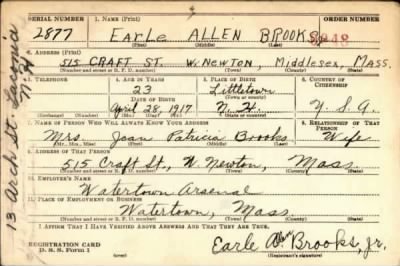 SERIAL NUMBER 1. NAME (Print) ORDER NUMBER
2877 EARLE ALLEN BROOKS
(First) (Middle) (Last)
2. ADDRESS (Print)
515 CRAFT ST. W. NEWTON, MIDDLESEX, MASS.
(Number and street or R. F. D. number) (Town) (County) (State)
3. TELEPHONE 4. AGE IN YEARS 5. PLACE OF BIRTH 6. COUNTRY OF CITIZENSHIP
23 Littletown
DATE OF BIRTH
April 28, 1917 N. H. U. S. A.
(Mo.) (Day) (Yr.) (State or country)
7. NAME OF PERSON WHO WILL ALWAYS KNOW YOUR ADDRESS 8. RELATIONSHIP OF THAT PERSON
Mrs. Jean Patricia Brooks Wife
(Mr., Mrs., Miss) (First) (Middle) (Last)
9. ADDRESS OF THAT PERSON
515 Craft St, W. Newton, Mass
(Number and street or R. F. D. number) (Town) (County) (State)
10. EMPLOYER'S NAME
Watertown Arsenal
11. PLACE OF EMPLOYMENT OR BUSINESS
Watertown, Mass
(Number and street or R. F. D. number) (Town) (County) (State)
I AFFIRM THAT I HAVE VERIFIED ABOVE ANSWERS AND THAT THEY ARE TRUE.
REGISTRATION CARD
D. S. S. Form 1
Earle Allen Brooks, Jr.
13 Arch St. Laconia
N. H.